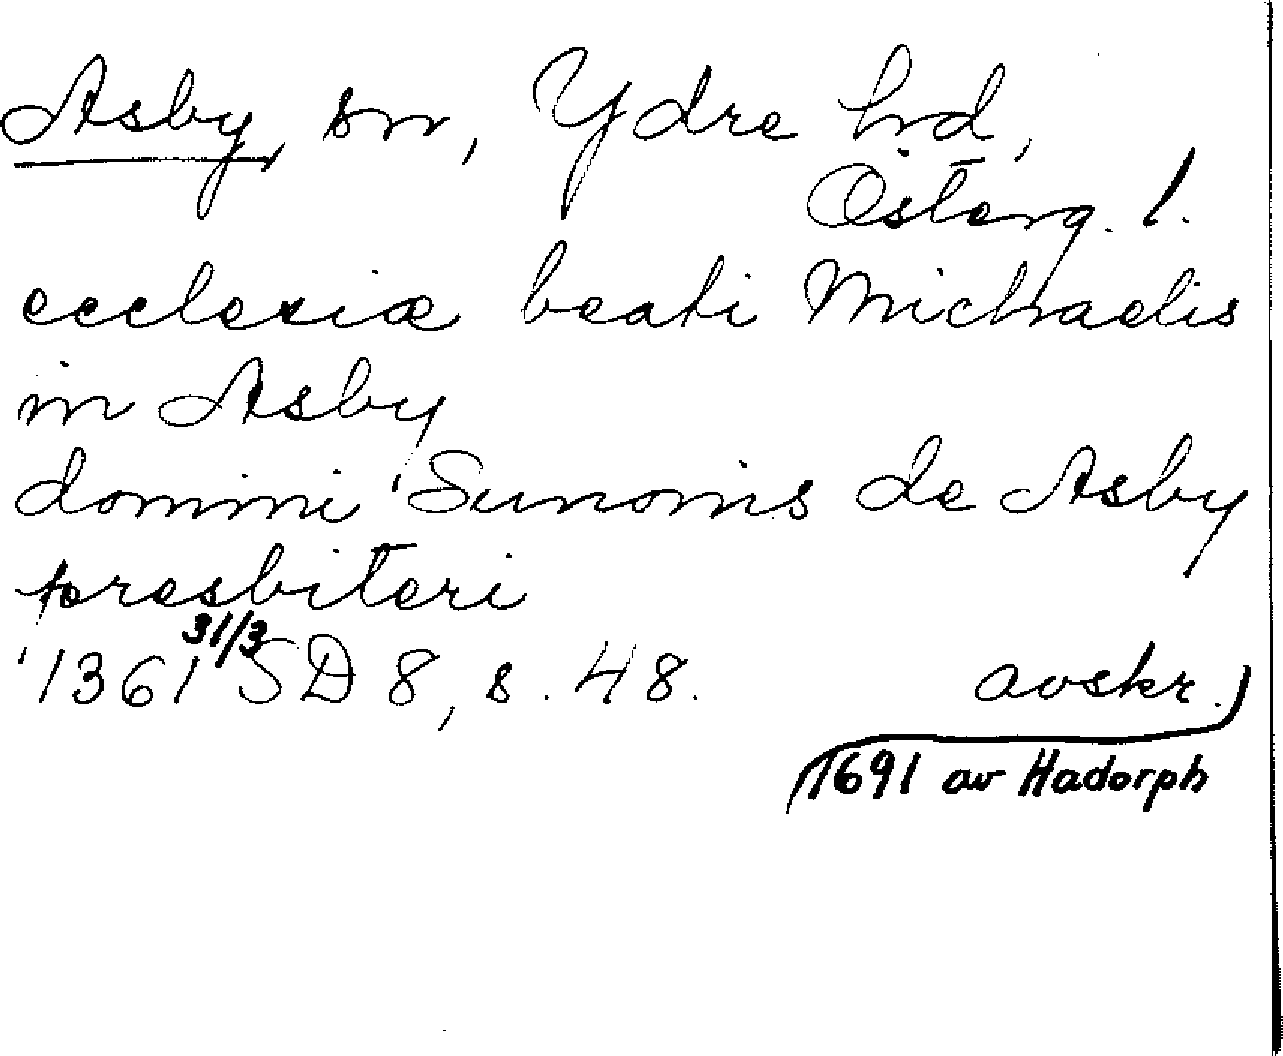 Asby, sn, Ydre hd,
Österg. l.
ecclesiæ beati Michaelis
in Asby
domini Sunonis de Asby
presbiteri
1361 31/3 SD 8, s. 48. avskr.
1691 av Hadorph